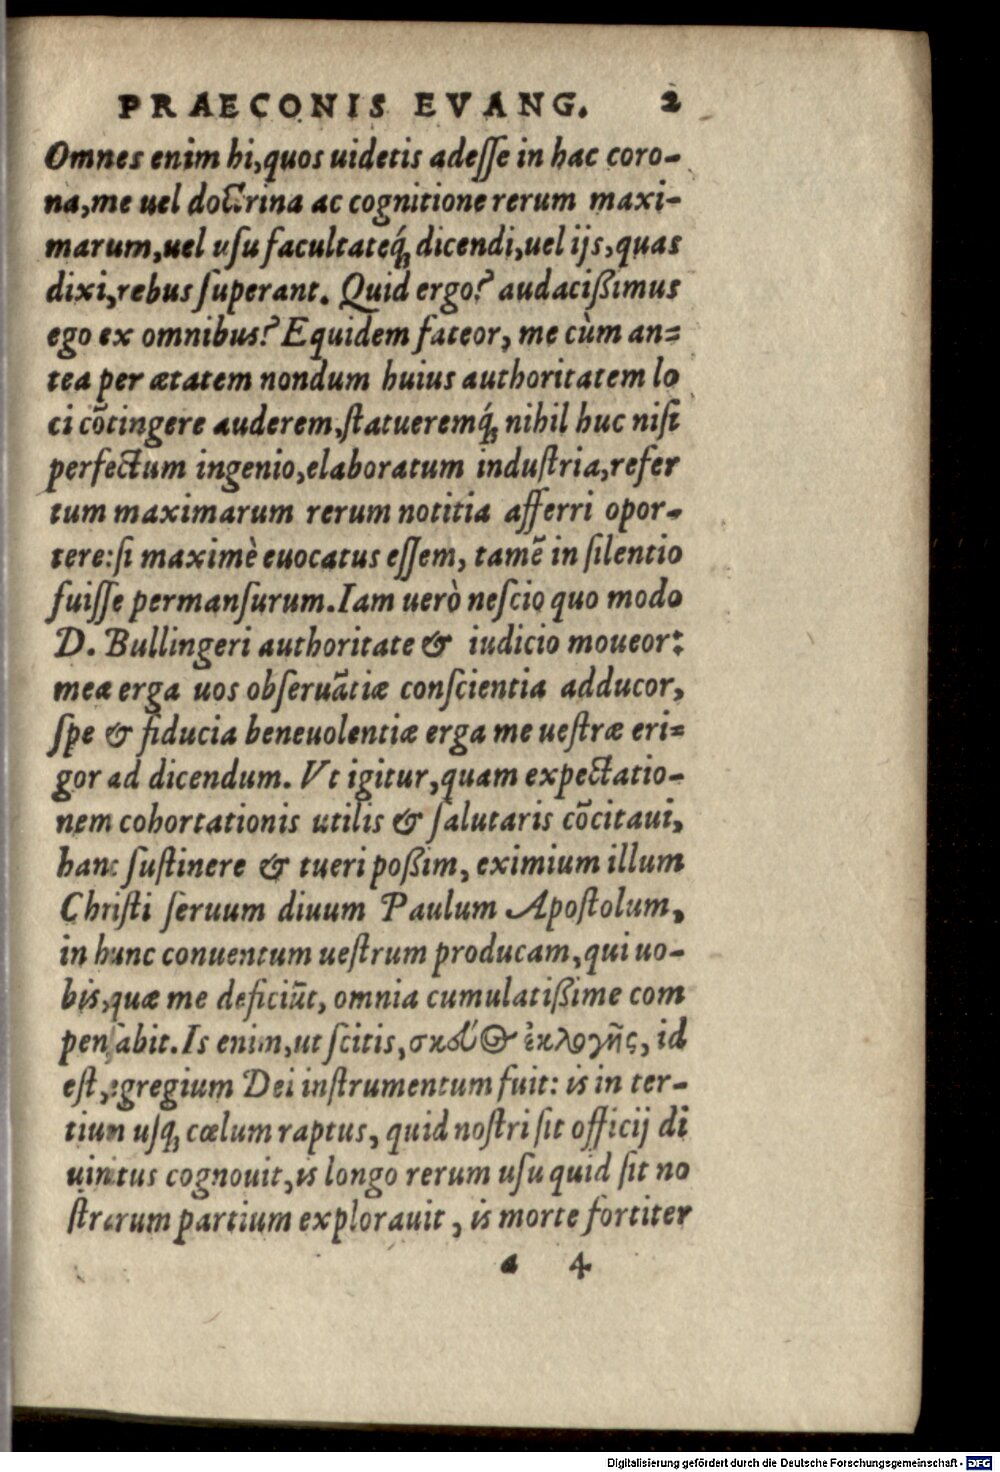 PRAECONIS EVANG. 2
Omnes enim hi, quos uidetis adesse in hac coro-
na, me uel doctrina ac cognitione rerum maxi-
marum, uel usu facultateq́ꝫ dicendi, uel ijs, quas
dixi, rebus superant. Quid ergo? audacißimus
ego ex omnibus? Equidem fateor, me cùm an=
tea per ætatem nondum huius authoritatem lo
ci cōtingere auderem, statueremq́ꝫ nihil huc nisi
perfectum ingenio, elaboratum industria, refer
tum maximarum rerum notitia afferri opor-
tere: si maximè euocatus essem, tamē in silentio
fuisse permansurum. Iam uerò nescio quo modo
D. Bullingeri authoritate & iudicio moueor:
meæ erga uos obseruātiæ conscientia adducor,
spe & fiducia beneuolentiæ erga me uestræ eri=
gor ad dicendum. Vt igitur, quam expectatio-
nem cohortationis utilis & salutaris cōcitaui,
hanc sustinere & tueri poßim, eximium illum
Christi seruum diuum Paulum Apostolum,
in hunc conuentum uestrum producam, qui uo-
bis, quæ me deficiūt, omnia cumulatißime com
pensabit. Is enim, ut scitis, σκεῦος ἐκλογῆς, id
est, egregium Dei instrumentum fuit: is in ter-
tium usqꝫ cœlum raptus, quid nostri sit officij di
uinitus cognouit, is longo rerum usu quid sit no
strarum partium explorauit, is morte fortiter
a 4
Digitalisierung gefördert durch die Deutsche Forschungsgemeinschaft - DFG